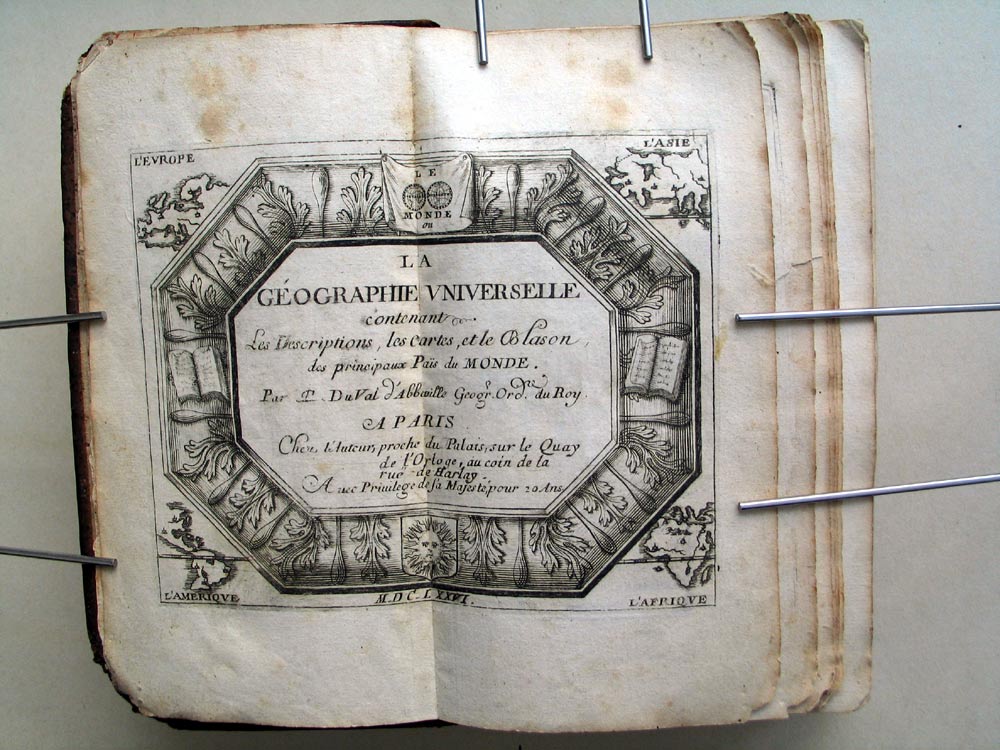 L'EVROPE
L'ASIE
LE
MONDE
ou
LA
GÉOGRAPHIE VNIVERSELLE
contenant
Les Descriptions, les Cartes, et le Blason,
des principaux Païs du MONDE.
Par P. DuVal d'Abbeville Geogr. Ordre. du Roy.
A PARIS
Chez l'Auteur, proche du Palais, sur le Quay
de l'Orloge, au coin de la
rue de Harlay.
Auec Priuilege de sa Majesté, pour 20 Ans.
L'AMERIQVE
M.DC.LXXVI.
L'AFRIQVE